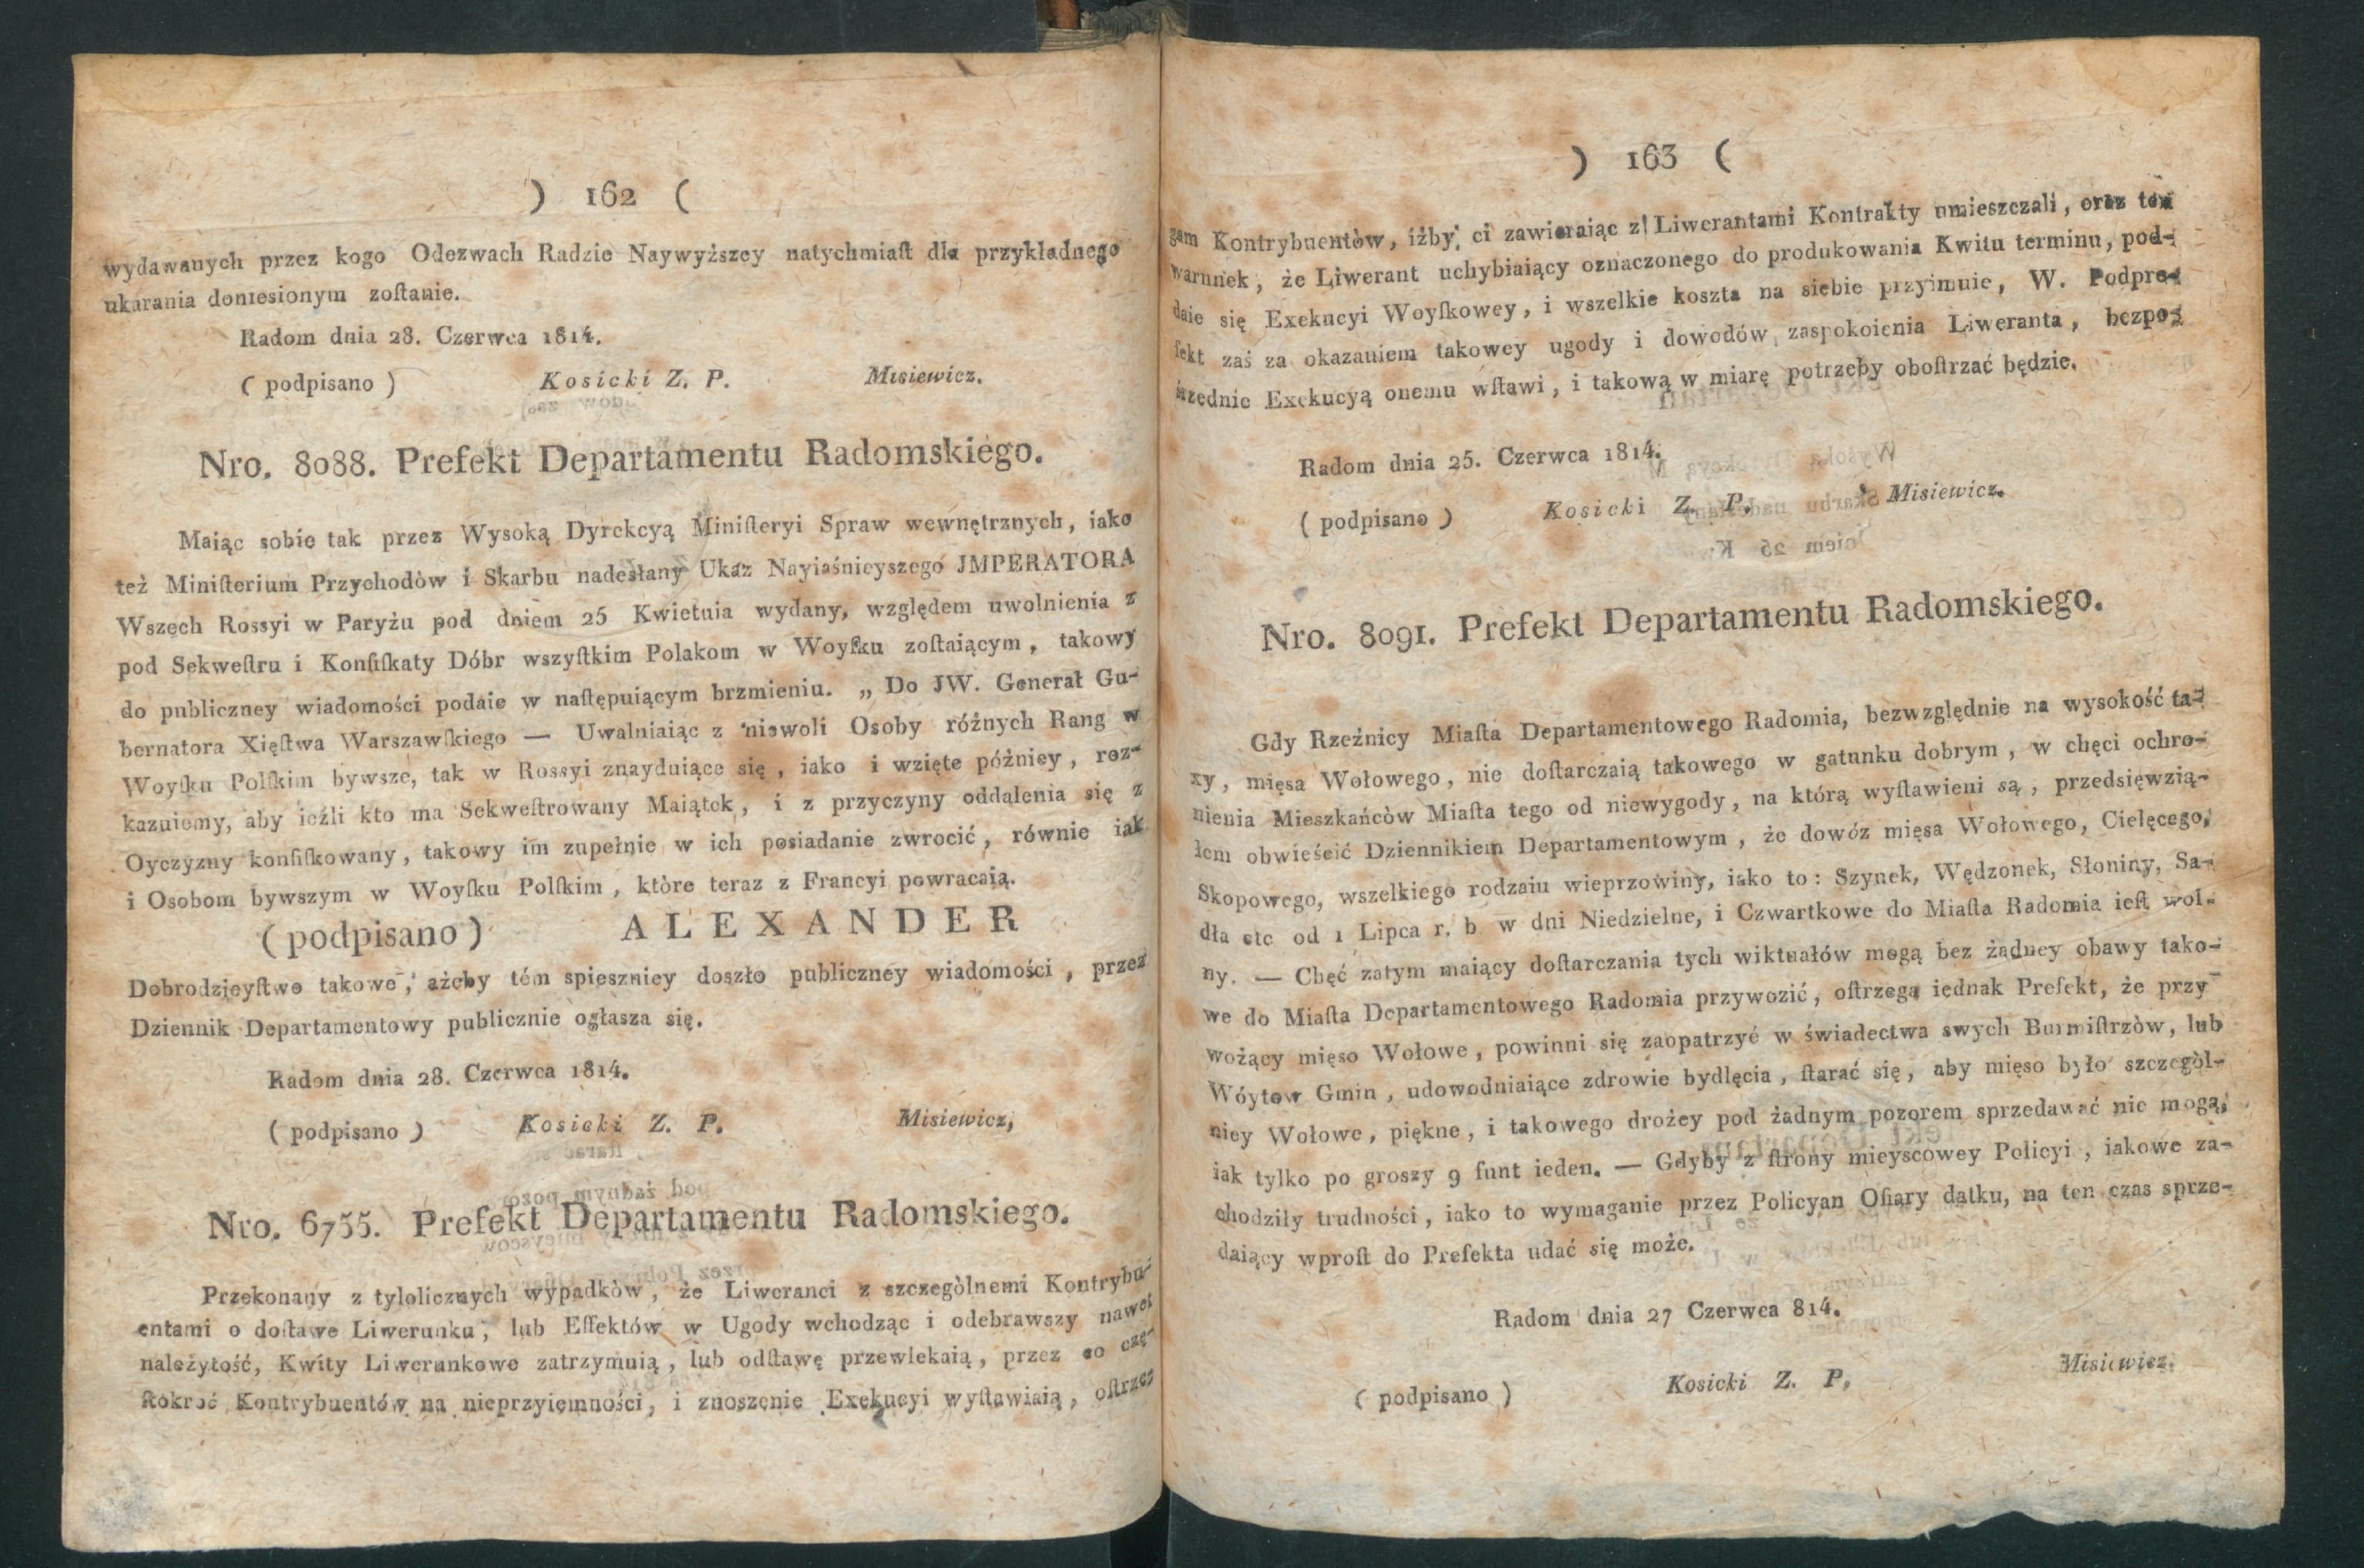 ) 162 (
wydawanych przez kogo Odezwach Radzie Naywyższey natychmiaſt dla przykładnego
ukarania doniesionym zoſtanie.
Radom dnia 28. Czerwca 1814.
( podpisano ) Kosicki Z. P. Misiewicz.
Nro. 8088. Prefekt Departamentu Radomskiego.
Maiąc sobie tak przez Wysoką Dyrekcyą Miniſteryi Spraw wewnętrznych, iako
też Miniſterium Przychodòw i Skarbu nadesłany Ukaz Nayiaśnieyszego JMPERATORA
Wszech Rossyi w Paryżu pod dniem 25 Kwietnia wydany, względem uwolnienia z
pod Sekweſtru i Konfiſkaty Dóbr wszyſtkim Polakom w Woyſku zoſtaiącym, takowy
do publiczney wiadomości podaie w naſtępuiącym brzmieniu. „ Do JW. Generał Gu-
bernatora Xięſtwa Warszawſkiego — Uwalniaiąc z niewoli Osoby różnych Rang w
Woyſku Polſkim bywsze, tak w Rossyi znayduiące się, iako i wzięte późniey, roz-
kazuiemy, aby ieźli kto ma Sekweſtrowany Maiątek, i z przyczyny oddalenia się z
Oyczyzny konfiſkowany, takowy im zupełnie w ich posiadanie zwrocić, równie iak
i Osobom bywszym w Woyſku Polſkim, ktòre teraz z Francyi powracaią.
( podpisano ) ALEXANDER
Dobrodzieyſtwo takowe, ażeby tém spieszniey doszło publiczney wiadomości, przez
Dziennik Departamentowy publicznie ogłasza się.
Radom dnia 28. Czerwca 1814.
( podpisano ) Kosicki Z. P. Misiewicz,
Nro. 6755. Prefekt Departamentu Radomskiego.
Przekonany z tylolicznych wypadkòw, że Liweranci z szczegòlnemi Kontrybu-
entami o doſtawe Liwerunku, lub Effektów w Ugody wchodząc i odebrawszy nawet
należytość, Kwity Liwerunkowe zatrzymuią, lub odſtawę przewlekaią, przez co czę-
ſtokroć Kontrybuentów na nieprzyiemności, i znoszenie Exekucyi wyſtawiaią, oſtrze-
) 163 (
gam Kontrybuentòw, iżby ci zawieraiąc z Liwerantami Kontrakty umieszczali, oraz ten
warunek, że Liwerant uchybiaiący oznaczonego do produkowania Kwitu terminu, pod-
daie się Exekucyi Woyſkowey, i wszelkie koszta na siebie przyimuie, W. Podpre-
fekt zaś za okazaniem takowey ugody i dowodów zaspokoienia Liweranta, bezpo-
śrzednie Exekucyą onemu wſtawi, i takową w miarę potrzeby oboſtrzać będzie.
Radom dnia 25. Czerwca 1814.
( podpisano ) Kosicki Z. P. Misiewicz.
Nro. 8091. Prefekt Departamentu Radomskiego.
Gdy Rzeźnicy Miaſta Departamentowego Radomia, bezwzględnie na wysokość ta-
xy, mięsa Wołowego, nie doſtarczaią takowego w gatunku dobrym, w chęci ochro-
nienia Mieszkańcòw Miaſta tego od niewygody, na którą wyſtawieni są, przedsięwzią-
łem obwieścić Dziennikiem Departamentowym, że dowóz mięsa Wołowego, Cielęcego,
Skopowego, wszelkiego rodzaiu wieprzowiny, iako to: Szynek, Wędzonek, Słoniny, Sa-
dła etc od 1 Lipca r. b w dni Niedzielne, i Czwartkowe do Miaſta Radomia ieſt wol-
ny. — Chęć zatym maiący doſtarczania tych wiktuałów mogą bez żadney obawy tako-
we do Miaſta Departamentowego Radomia przywozić, oſtrzega iednak Prefekt, że przy-
wożący mięso Wołowe, powinni się zaopatrzyć w świadectwa swych Burmiſtrzòw, lub
Wóytow Gmin, udowodniaiące zdrowie bydlęcia, ſtarać się, aby mięso było szczegòl-
niey Wołowe, piękne, i takowego drożey pod żadnym pozorem sprzedawać nie mogą,
iak tylko po groszy 9 funt ieden. — Gdyby z ſtrony mieyscowey Policyi, iakowe za-
chodziły trudności, iako to wymaganie przez Policyan Ofiary datku, na ten czas sprze-
daiący wproſt do Prefekta udać się może.
Radom dnia 27 Czerwca 814.
( podpisano ) Kosicki Z. P. Misiewicz.